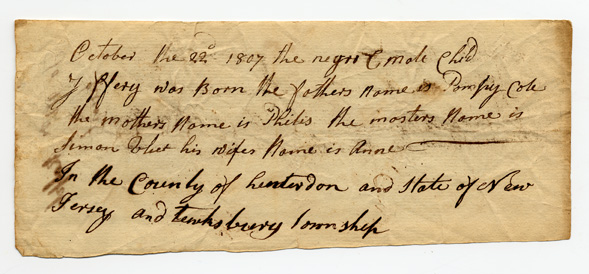 October the 22d 1807 the negro male Child
Jeffery was Born the fathers Name is Pompy Cole
the mothers Name is Philis the masters Name is
Simon Vliet his wifes Name is Anne
In the County of hunterdon and State of New
Jersey and tewksbury township